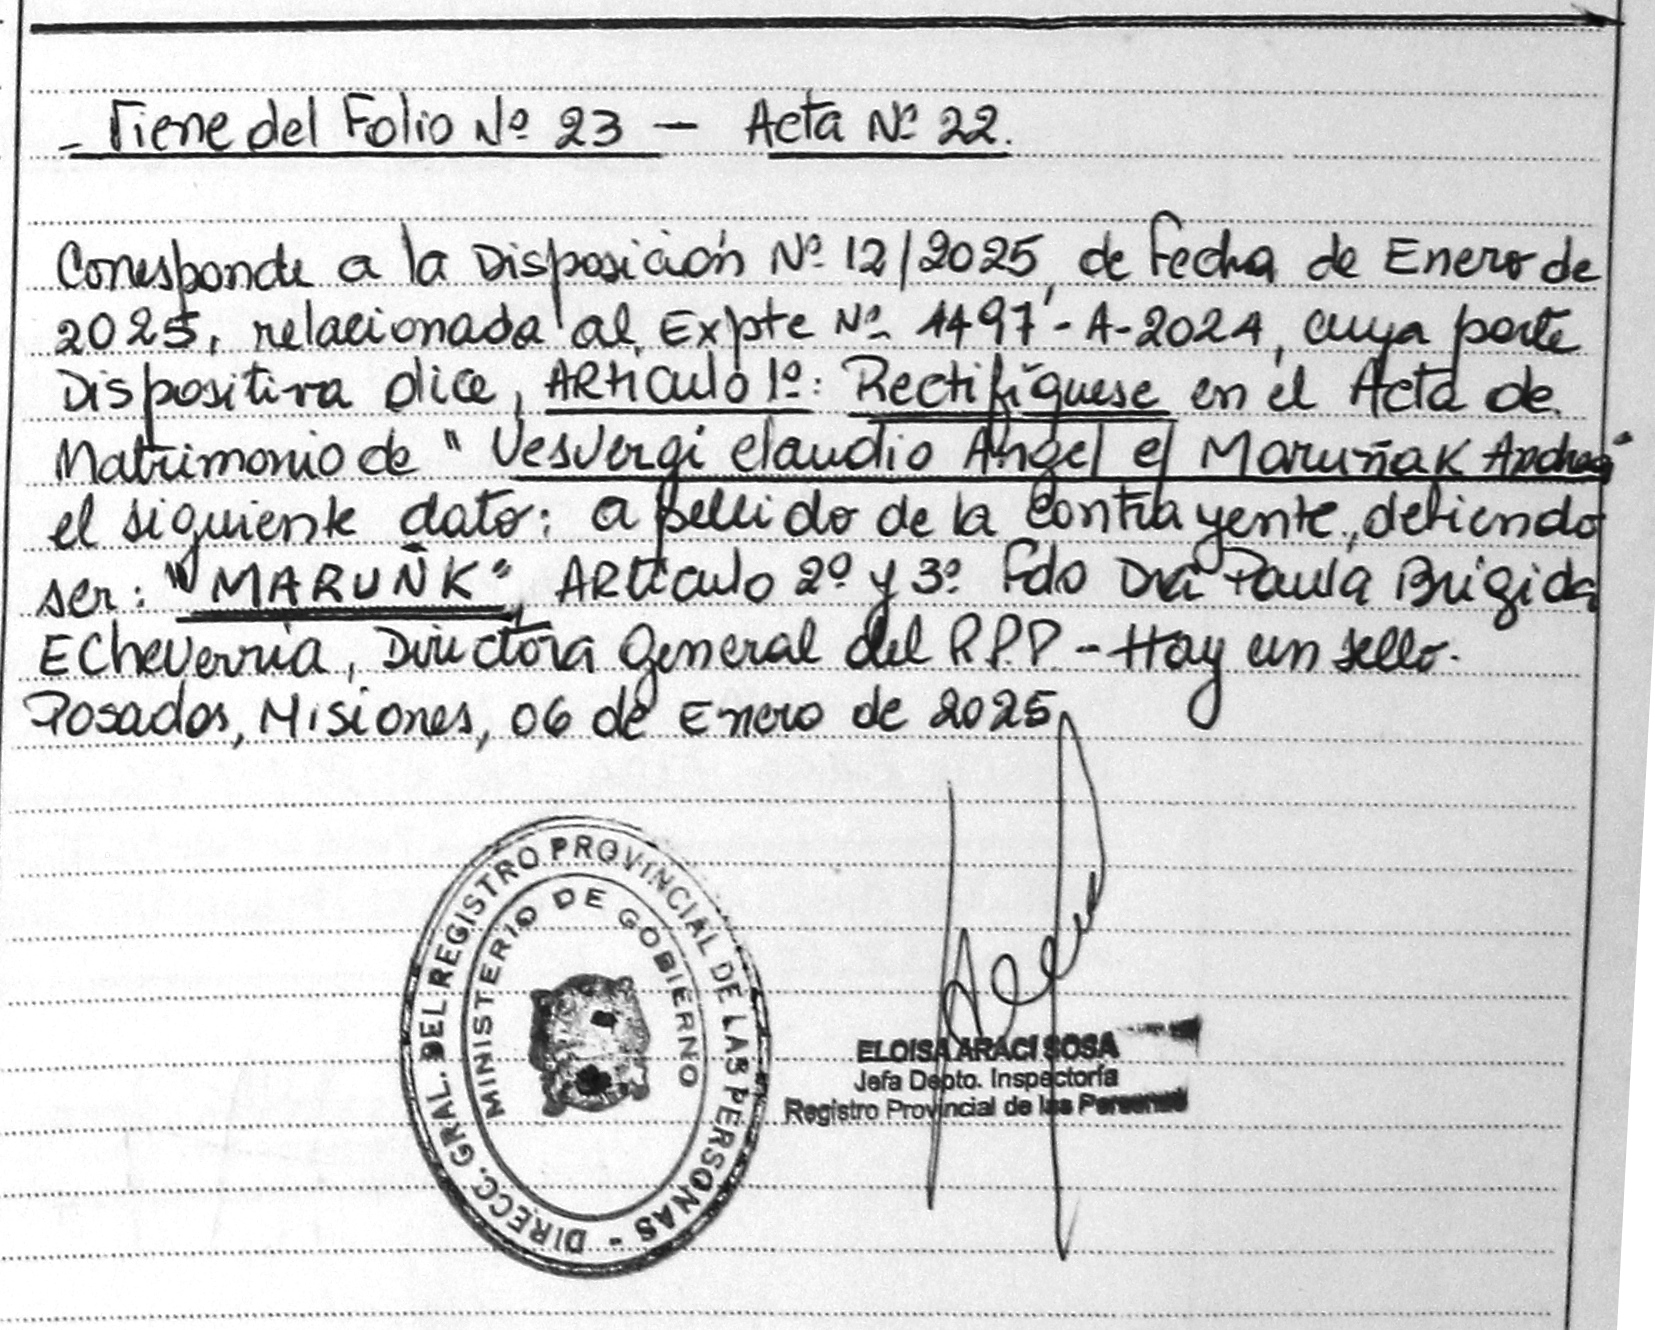 - Viene del Folio Nº 23 - Acta Nº 22.
Corresponde a la Disposición Nº 12/2025, de fecha de Enero de
2025, relacionada al Expte Nº 4497-A-2024, cuya parte
Dispositiva dice, ARticulo 1º: Rectifíquese en el Acta de
Matrimonio de "Vesvergi Claudio Angel c/ Maruñak Andrea"
el siguiente dato: apellido de la contrayente, debiendo
ser: "MARUÑK", ARticulo 2º y 3º Fdo Dra Paula Brigida
Echeverria, Directora General del R.P.P. - Hay un sello.
Posadas, Misiones, 06 de Enero de 2025
DIRECC. GRAL. DEL REGISTRO PROVINCIAL DE LAS PERSONAS -
MINISTERIO DE GOBIERNO
ELOISA ARACI SOSA
Jefa Depto. Inspectoría
Registro Provincial de las Personas